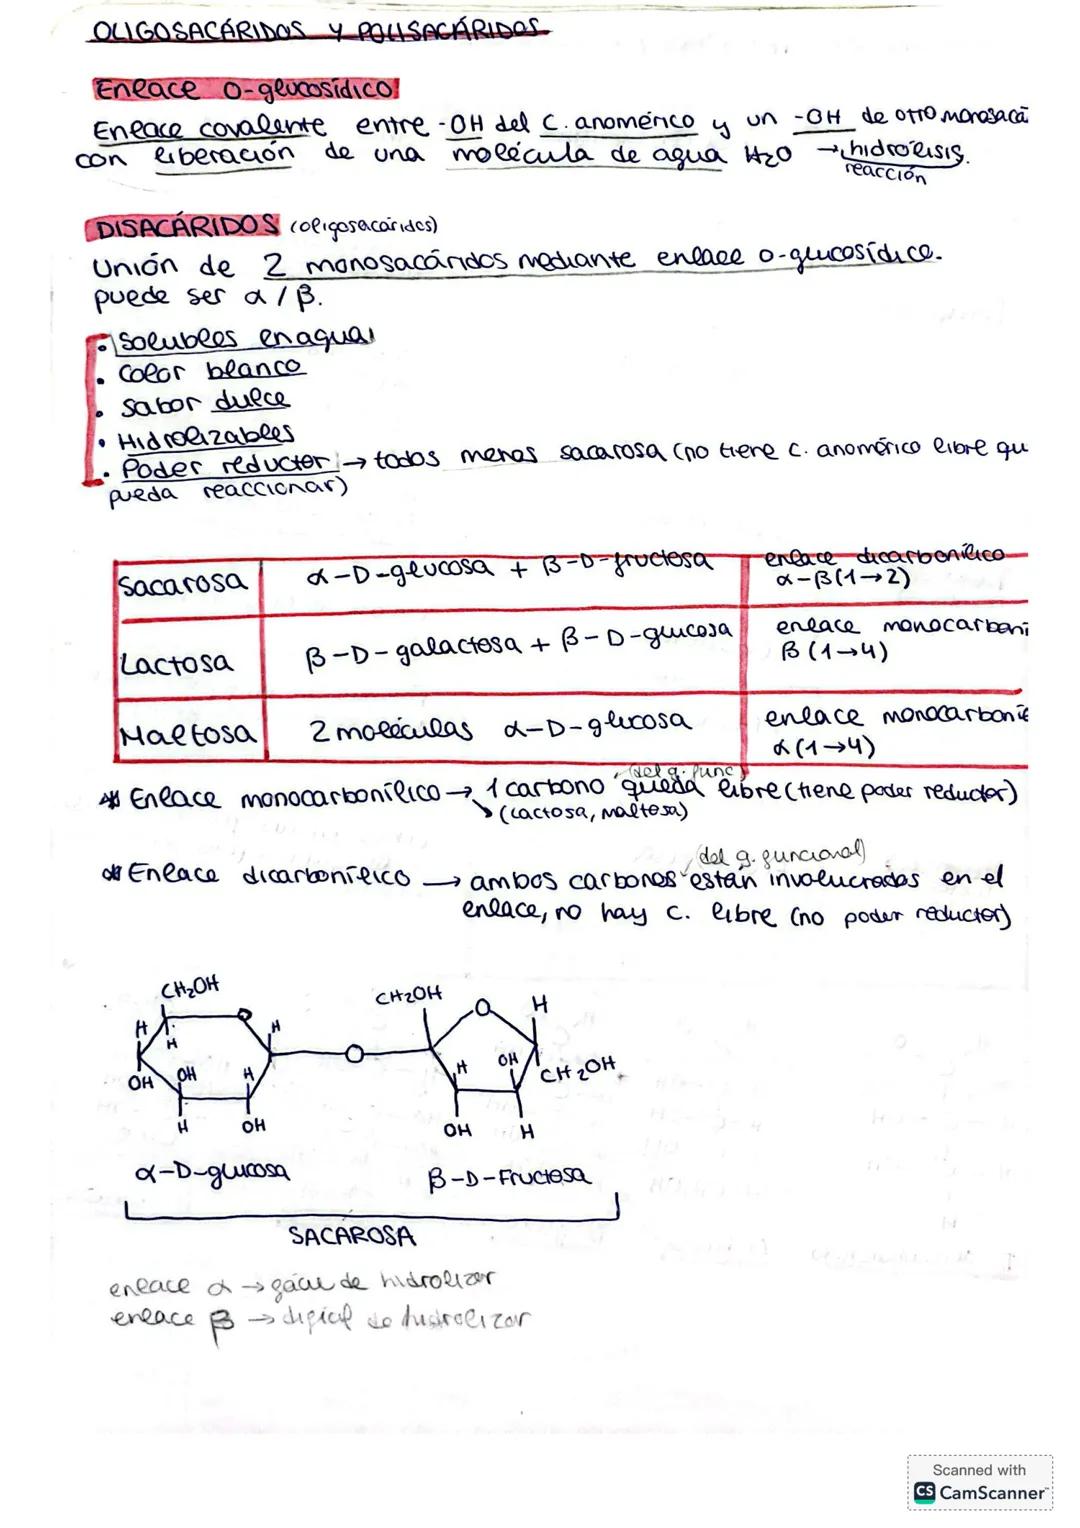 OLIGOSACÁRIDOS Y POLISACÁRIDOS
Enlace O-glucosídico
Enlace covalente entre -OH del C. anomérico y un -OH de otro monosacá
con liberación de una molécula de agua H2O → hidrólisis.
reacción
DISACÁRIDOS (oligosacáridos)
Unión de 2 monosacáridos mediante enlace o-glucosídico.
puede ser α / β.
• Solubles en agua
• Color blanco
• Sabor dulce
• Hidrolizables
• Poder reductor → todos menos sacarosa (no tiene C. anomérico libre qu
pueda reaccionar)
Sacarosa α-D-glucosa + β-D-fructosa enlace dicarbonílico α-β(1→2)
Lactosa β-D-galactosa + β-D-glucosa enlace monocarboni β (1→4)
Maltosa 2 moléculas α-D-glucosa enlace monocarboní α (1→4)
(del g. func)
* Enlace monocarbonílico → 1 carbono queda libre (tiene poder reductor)
(lactosa, maltosa)
(del g. funcional)
* Enlace dicarbonílico → ambos carbonos están involucrados en el
enlace, no hay C. libre (no poder reductor)
CH2OH CH2OH O H
H H O H
OH OH H O H OH CH2OH
H OH OH H
α-D-glucosa β-D-Fructosa
SACAROSA
enlace α → fácil de hidrolizar
enlace β → difícil de hidrolizar
Scanned with
CS CamScanner